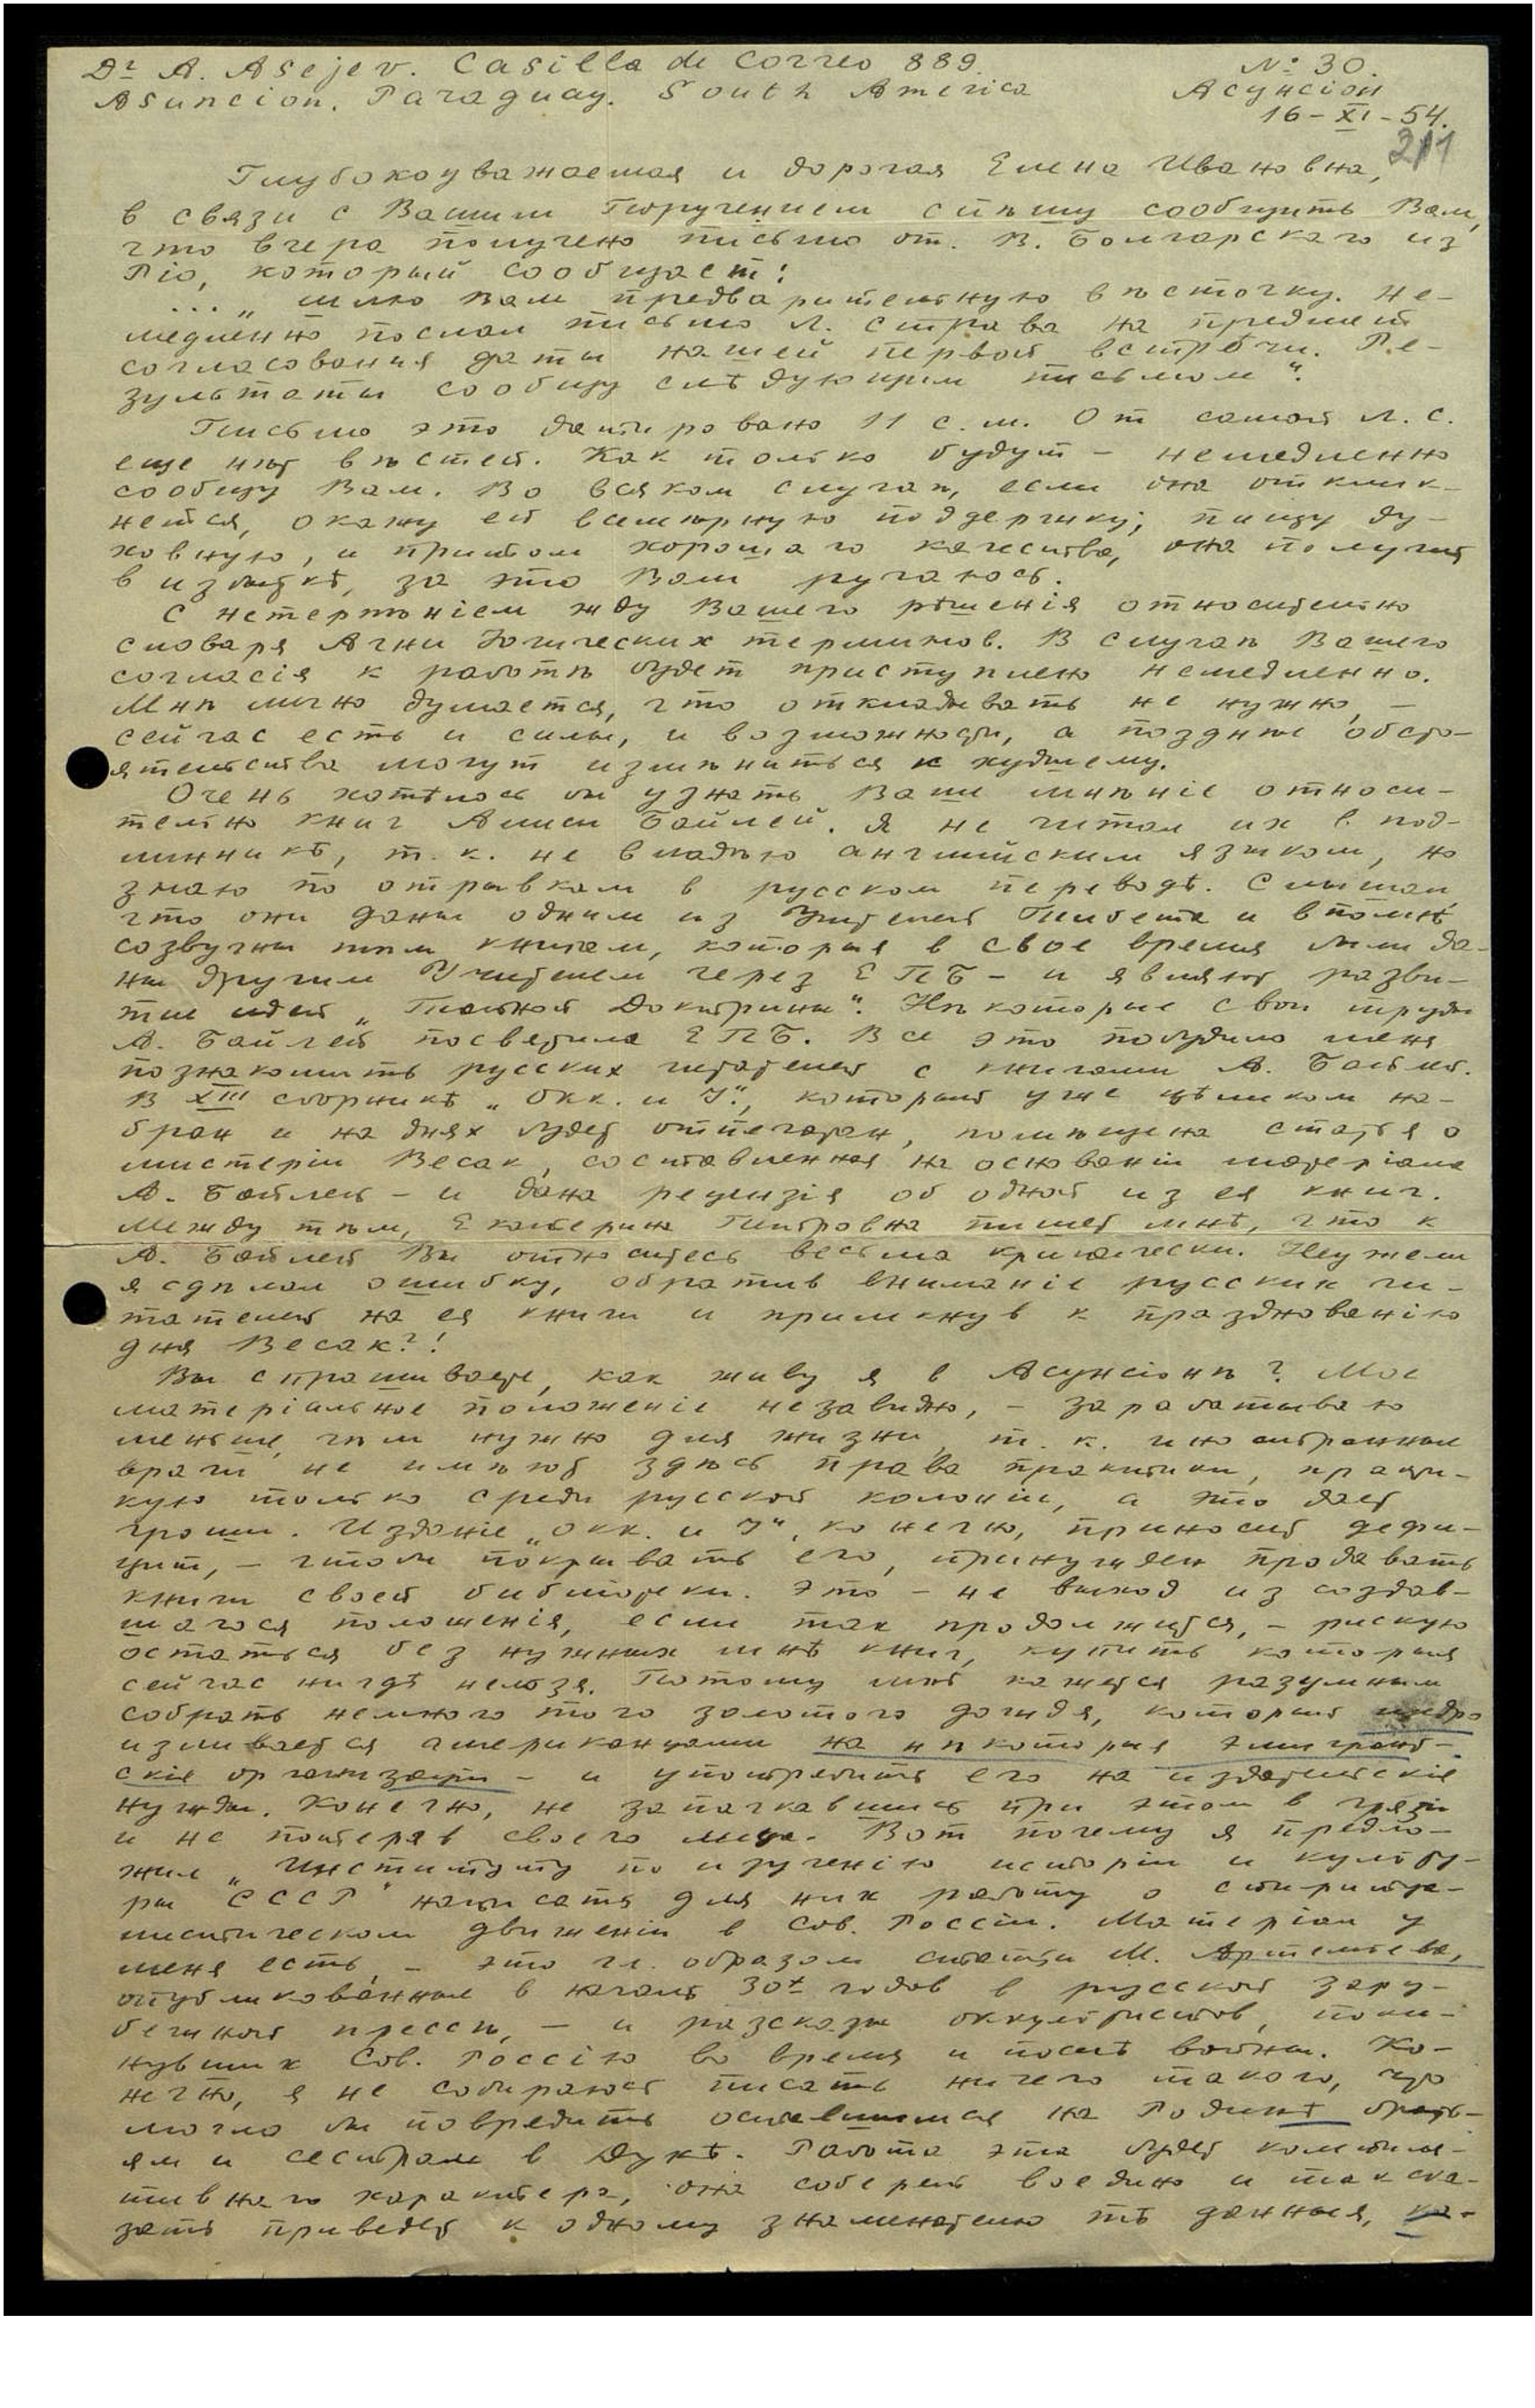 Dr A. Asejev. Casilla de Correo 889.
№ 30.
Asuncion. Paraguay. South America
Асунсіон
16-XI-54.
211
Глубокоуважаемая и дорогая Елена Ивановна,
в связи с Вашим Поручением спѣшу сообщить Вам,
что вчера получено письмо от В. Болгарского из
Ріо, который сообщает:
... „шлю Вам предварительную вѣсточку. Не-
медленно послал письмо Л. Страва на предмет
согласования даты нашей первой встрѣчи. Ре-
зультаты сообщу слѣдующим письмом".
Письмо это датировано 11 с.м. От самой Л. С.
еще нѣт вѣстей. Как только будут – немедленно
сообщу Вам. Во всяком случаѣ, если она отклик-
нется, окажу ей всемѣрную поддержку; пищу ду-
ховную, и притом хорошаго качества, она получит
в избыткѣ, за это Вам ручаюсь.
С нетерпѣніем жду Вашего рѣшенія относительно
словаря Агни Іогических терминов. В случаѣ Вашего
согласія к работѣ будет приступлено немедленно.
Мнѣ лично думается, что откладывать не нужно, –
сейчас есть и силы, и возможности, а позднѣе обсто-
ятельства могут измѣниться к худшему.
Очень хотѣлось бы узнать Ваше мнѣніе относи-
тельно книг Алисы Бэйлей. Я не читал их в под-
линникѣ, т. к. не владѣю английским языком, но
знаю по отрывкам в русском переводѣ. Слышал,
что они даны одним из Учителей Тибета и вполнѣ
созвучны тѣм книгам, которыя в свое время были да-
ны другим Учителем через Е П Б – и являют разви-
тие идей „Тайной Доктрины". Нѣкоторые свои труды
А. Бэйлей посвятила Е П Б. Все это побудило меня
познакомить русских читателей с книгами А. Бэйлей.
В XIII сборникѣ „Окк. и І.", который уже цѣликом на-
бран и на днях будет отпечатан, помѣщена статья о
мистеріи Весак, составленная на основаніи матеріала
А. Бэйлей – и дана рецензія об одной из ея книг.
Между тѣм, Екатерина Петровна пишет мнѣ, что к
А. Бэйлей Вы относитесь весьма критически. Неужели
я сдѣлал ошибку, обратив вниманіе русских чи-
тателей на ея книги и примкнув к празднованію
дня Весак?!
Вы спрашиваете, как живу я в Асунсіонѣ? Мое
матеріальное положеніе незавидно, – зарабатываю
меньше, чѣм нужно для жизни, т. к. иностранные
врачи не имѣют здѣсь права практики, практи-
кую только среди русской колоніи, а это дает
гроши. Изданіе „Окк. и І", конечно, приносит дефи-
цит, – чтобы покрывать его, принужден продавать
книги своей библіотеки. Это – не выход из создав-
шагося положенія, если так продолжится, – рискую
остаться без нужных мнѣ книг, купить которыя
сейчас нигдѣ нельзя. Потому мнѣ кажется разумным
собрать немного того золотого дождя, который щедро
изливается американцами на нѣкоторыя эмигрант-
скіе организации – и употребить его на издательскіе
нужды. Конечно, не запачкавшись при этом в грязи
и не потеряв своего лица. Вот почему я предло-
жил „Институту по изученію исторіи и культу-
ры СССР" написать для них работу о спиритуа-
листическом движеніи в Сов. Россіи. Матеріал у
меня есть, – это гл. образом статьи М. Артемьева,
опубликованные в началѣ 30х годов в русской зару-
бежной прессѣ, – и разсказы оккультистов, поки-
нувших Сов. Россію во время и послѣ войны. Ко-
нечно, я не собираюсь писать ничего такого, что
могло бы повредить оставшимся на Родинѣ брать-
ям и сестрам в Духѣ. Работа эта будет компиля-
тивнаго характера, она соберет воедино и так ска-
зать приведет к одному знаменателю тѣ данныя, ко-